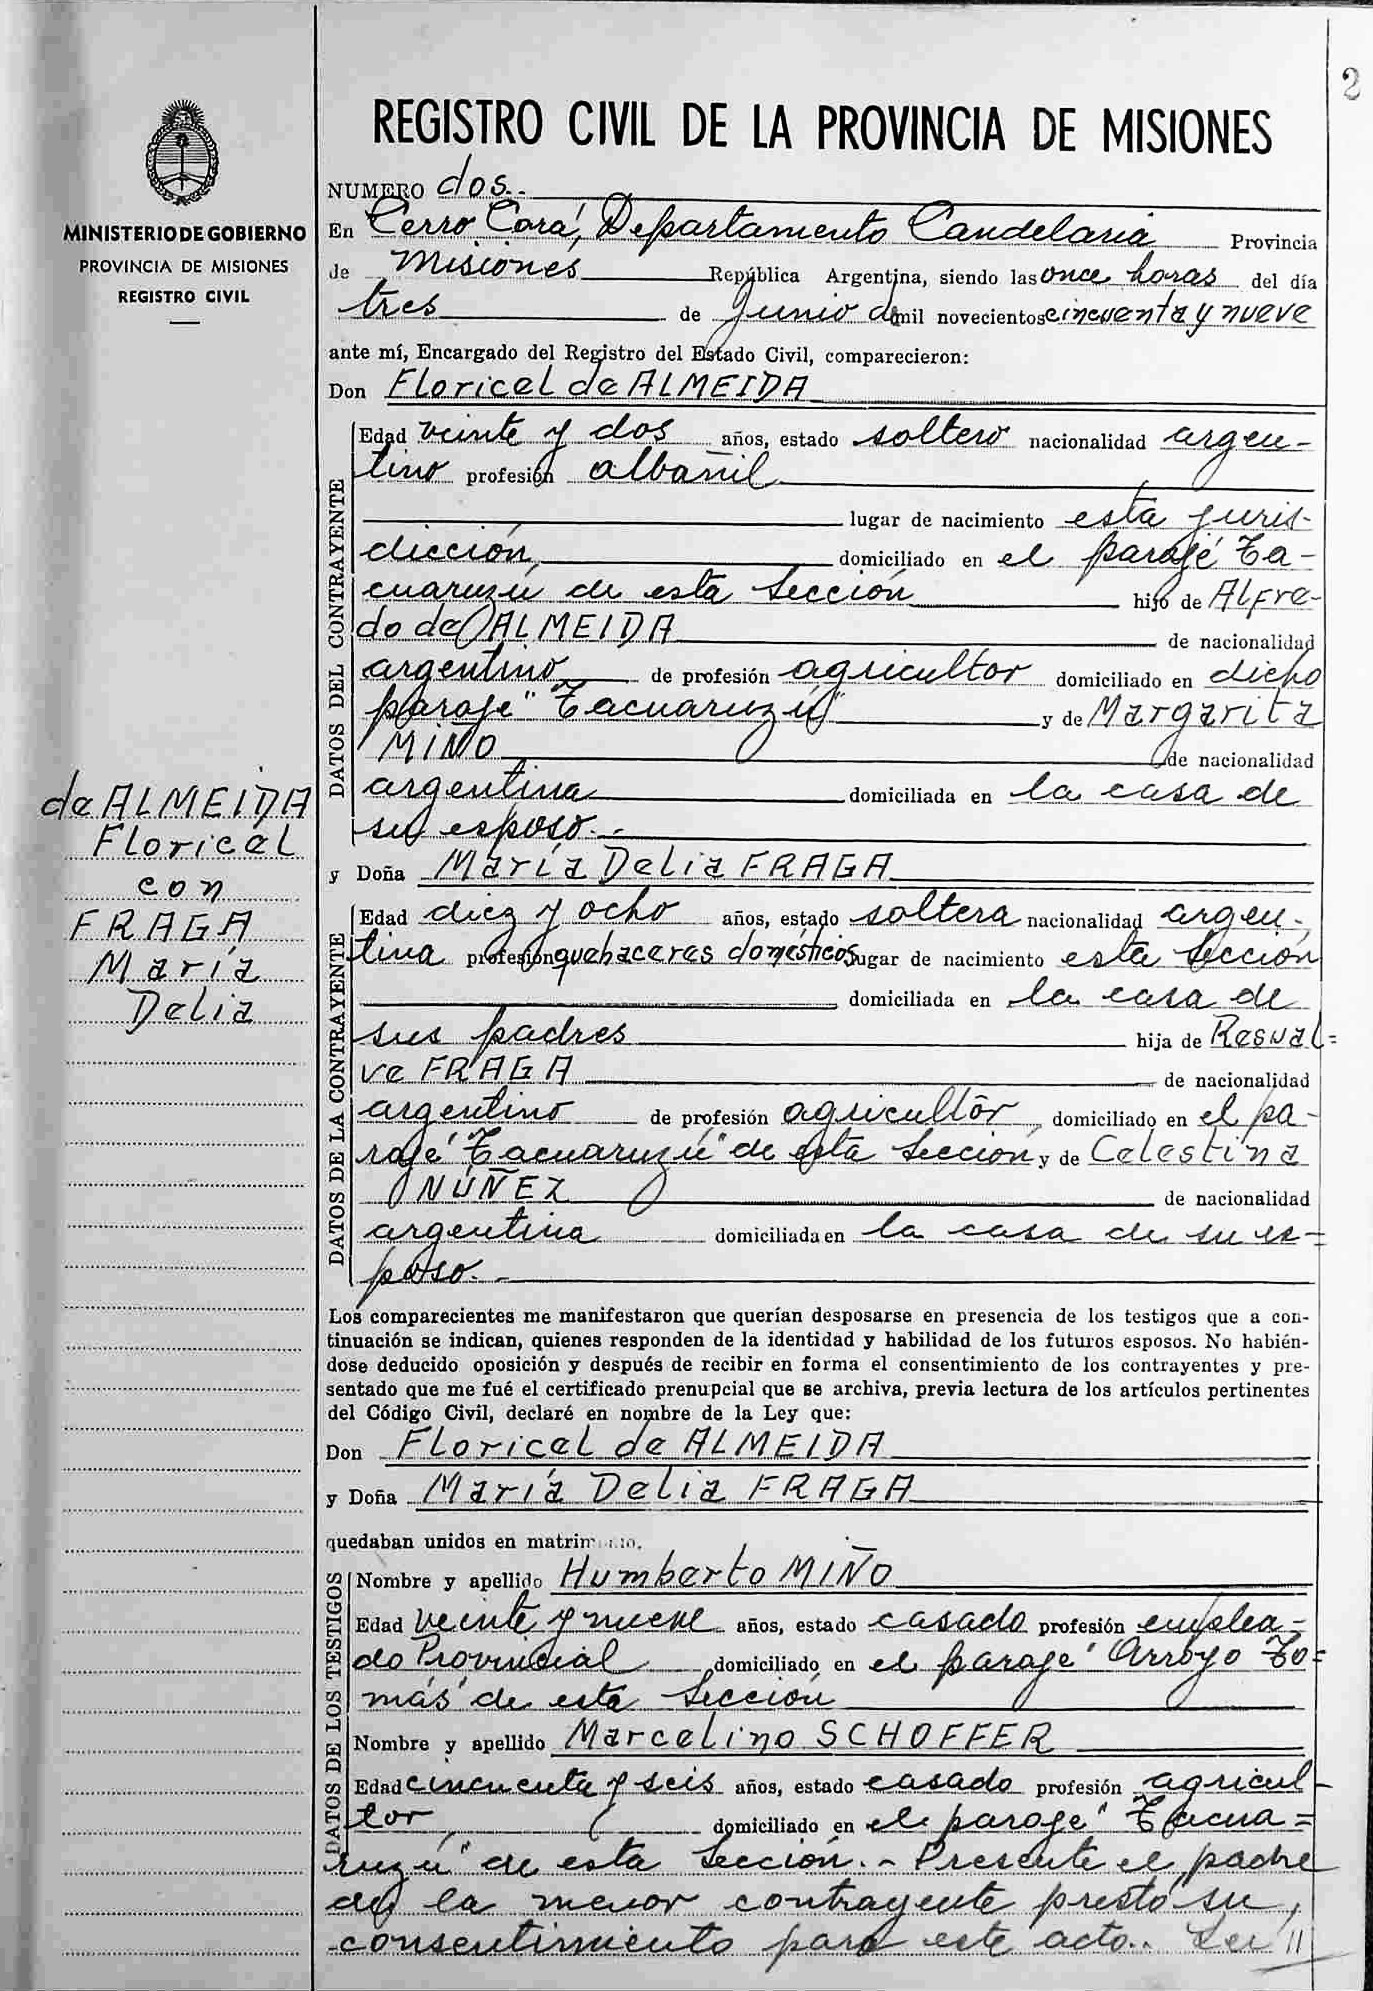 2
MINISTERIO DE GOBIERNO
PROVINCIA DE MISIONES
REGISTRO CIVIL
de ALMEIDA
Floricel
con
FRAGA
María
Delia
REGISTRO CIVIL DE LA PROVINCIA DE MISIONES
NUMERO dos.-
En Cerro Corá, Departamento Candelaria Provincia
de Misiones República Argentina, siendo las once horas del día
tres de Junio de mil novecientos cincuenta y nueve
ante mí, Encargado del Registro del Estado Civil, comparecieron:
Don Floricel de ALMEIDA
DATOS DEL CONTRAYENTE
Edad veinte y dos años, estado soltero nacionalidad argen-
tino profesión albañil
lugar de nacimiento esta juris-
dicción domiciliado en el paraje Ta-
cuaruzú de esta Sección hijo de Alfre-
do de ALMEIDA de nacionalidad
argentino de profesión agricultor domiciliado en dicho
paraje "Tacuaruzú" y de Margarita
MIÑO de nacionalidad
argentina domiciliada en la casa de
su esposo.-
y Doña María Delia FRAGA
DATOS DE LA CONTRAYENTE
Edad diez y ocho años, estado soltera nacionalidad argen-
tina profesión quehaceres domésticos lugar de nacimiento esta Sección
domiciliada en la casa de
sus padres hija de Resual=
ve FRAGA de nacionalidad
argentino de profesión agricultor, domiciliado en el pa-
raje "Tacuaruzú" de esta Sección y de Celestina
NÚÑEZ de nacionalidad
argentina domiciliada en la casa de su es=
poso.-
Los comparecientes me manifestaron que querían desposarse en presencia de los testigos que a con-
tinuación se indican, quienes responden de la identidad y habilidad de los futuros esposos. No habién-
dose deducido oposición y después de recibir en forma el consentimiento de los contrayentes y pre-
sentado que me fué el certificado prenupcial que se archiva, previa lectura de los artículos pertinentes
del Código Civil, declaré en nombre de la Ley que:
Don Floricel de ALMEIDA
y Doña María Delia FRAGA
quedaban unidos en matrimonio.
DATOS DE LOS TESTIGOS
Nombre y apellido Humberto MIÑO
Edad veinte y nueve años, estado casado profesión emplea-
do Provincial domiciliado en el paraje "Arroyo To=
más" de esta Sección
Nombre y apellido Marcelino SCHOFFER
Edad cincuenta y seis años, estado casado profesión agricul-
tor, domiciliado en el paraje "Tacua=
ruzú" de esta Sección.- Presente el padre
de la menor contrayente prestó su
consentimiento para este acto.. Leí //